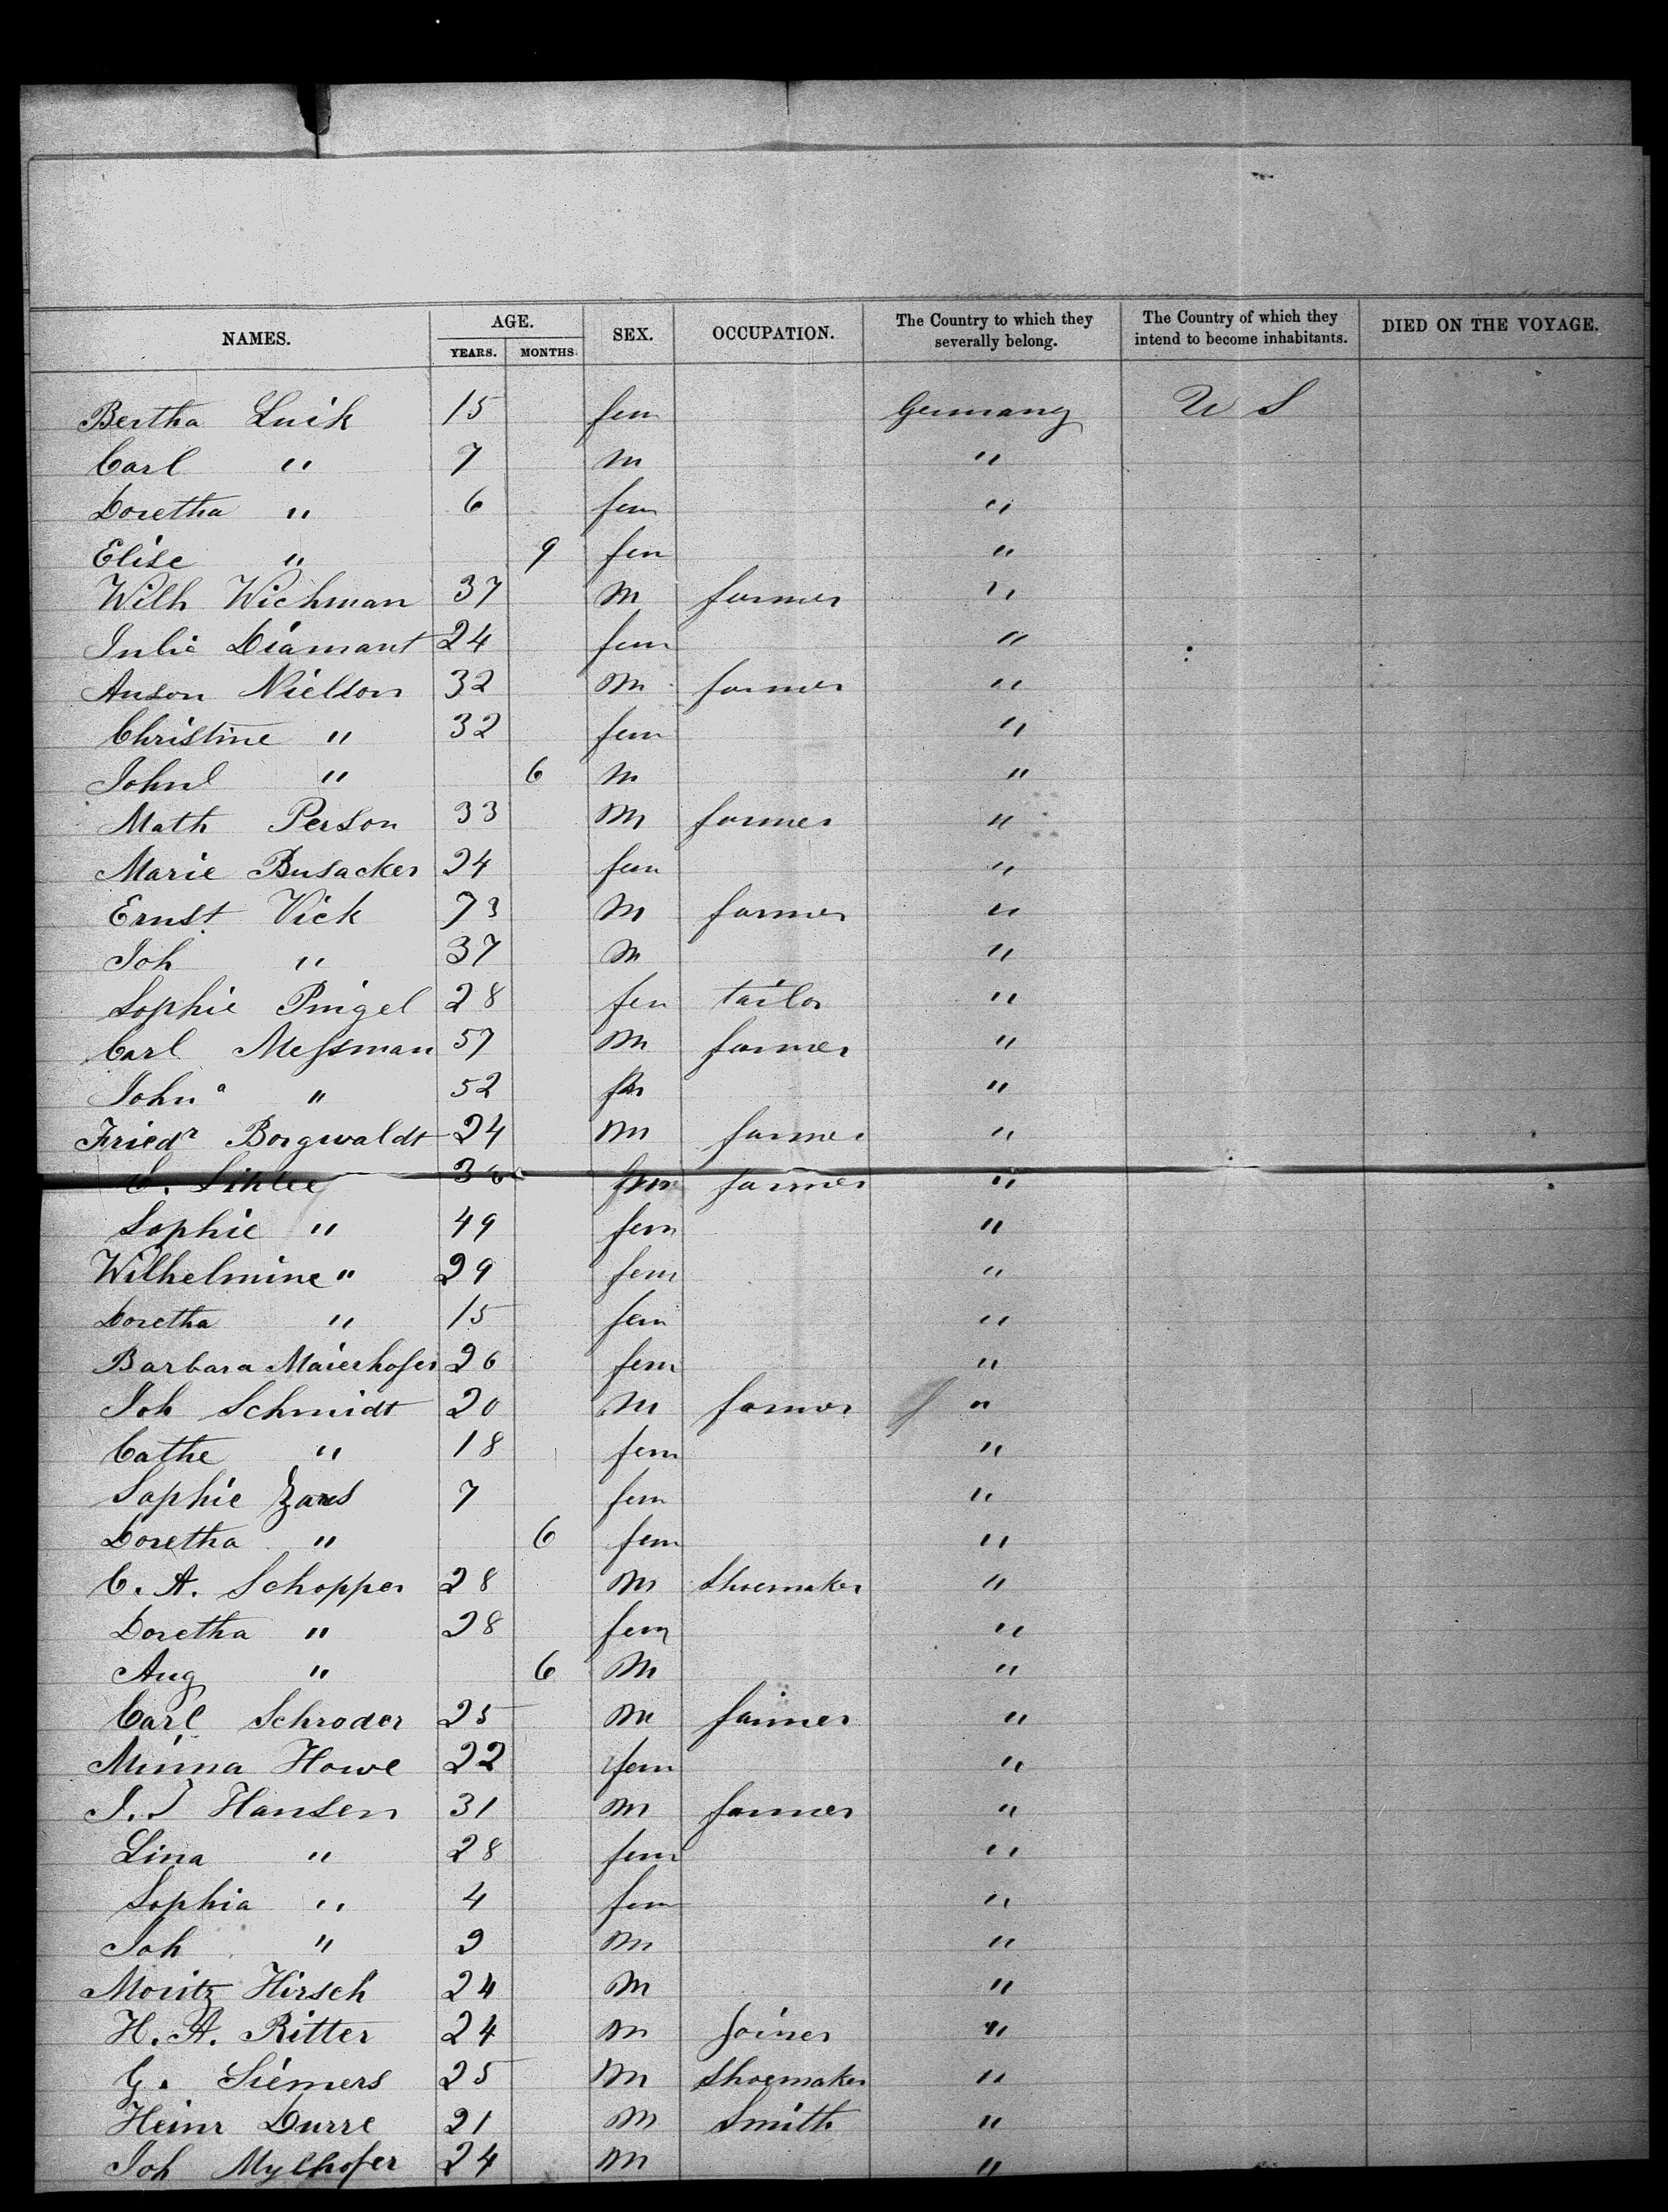 NAMES. AGE. SEX. OCCUPATION. The Country to which they severally belong. The Country of which they intend to become inhabitants. DIED ON THE VOYAGE.
YEARS. MONTHS.
Bertha Luik 15 fem Germany U S
Carl " 7 m "
Doretha " 6 fem "
Elise " 9 fem "
Wilh Wichman 37 m farmer "
Julie Diamant 24 fem "
Anson Nielson 32 m farmer "
Christine " 32 fem "
John " 6 m "
Math Person 33 m farmer "
Marie Busacker 24 fem "
Ernst Vick 73 m farmer "
Joh " 37 m "
Sophie Pingel 28 fem tailor "
Carl Messman 57 m farmer "
Johna " 52 "
Friedr Borgwaldt 24 m farmer "
C. farmer "
Sophie " 49 fem "
Wilhelmine " 29 fem "
Doretha " 15 fem "
Barbara Maierhofer 26 fem "
Joh Schmidt 20 m farmer "
Cathe " 18 fem "
Sophie 7 fem "
Doretha " 6 fem "
C. A. Schopper 28 m Shoemaker "
Doretha " 28 fem "
Aug " 6 m "
Carl Schroder 25 m farmer "
Minna Howe 22 fem "
J. J Hansen 31 m farmer "
Lina " 28 fem "
Sophia " 4 fem "
Joh " 2 m "
Moritz Hirsch 24 m "
H. A. Ritter 24 m joiner "
G. Siemers 25 m Shoemaker "
Heinr Durre 21 m Smith "
Joh Mylhofer 24 m "